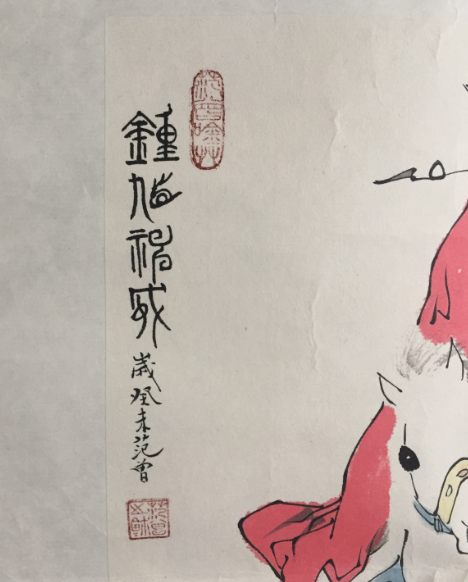 鍾馗神威
歲癸未范曾